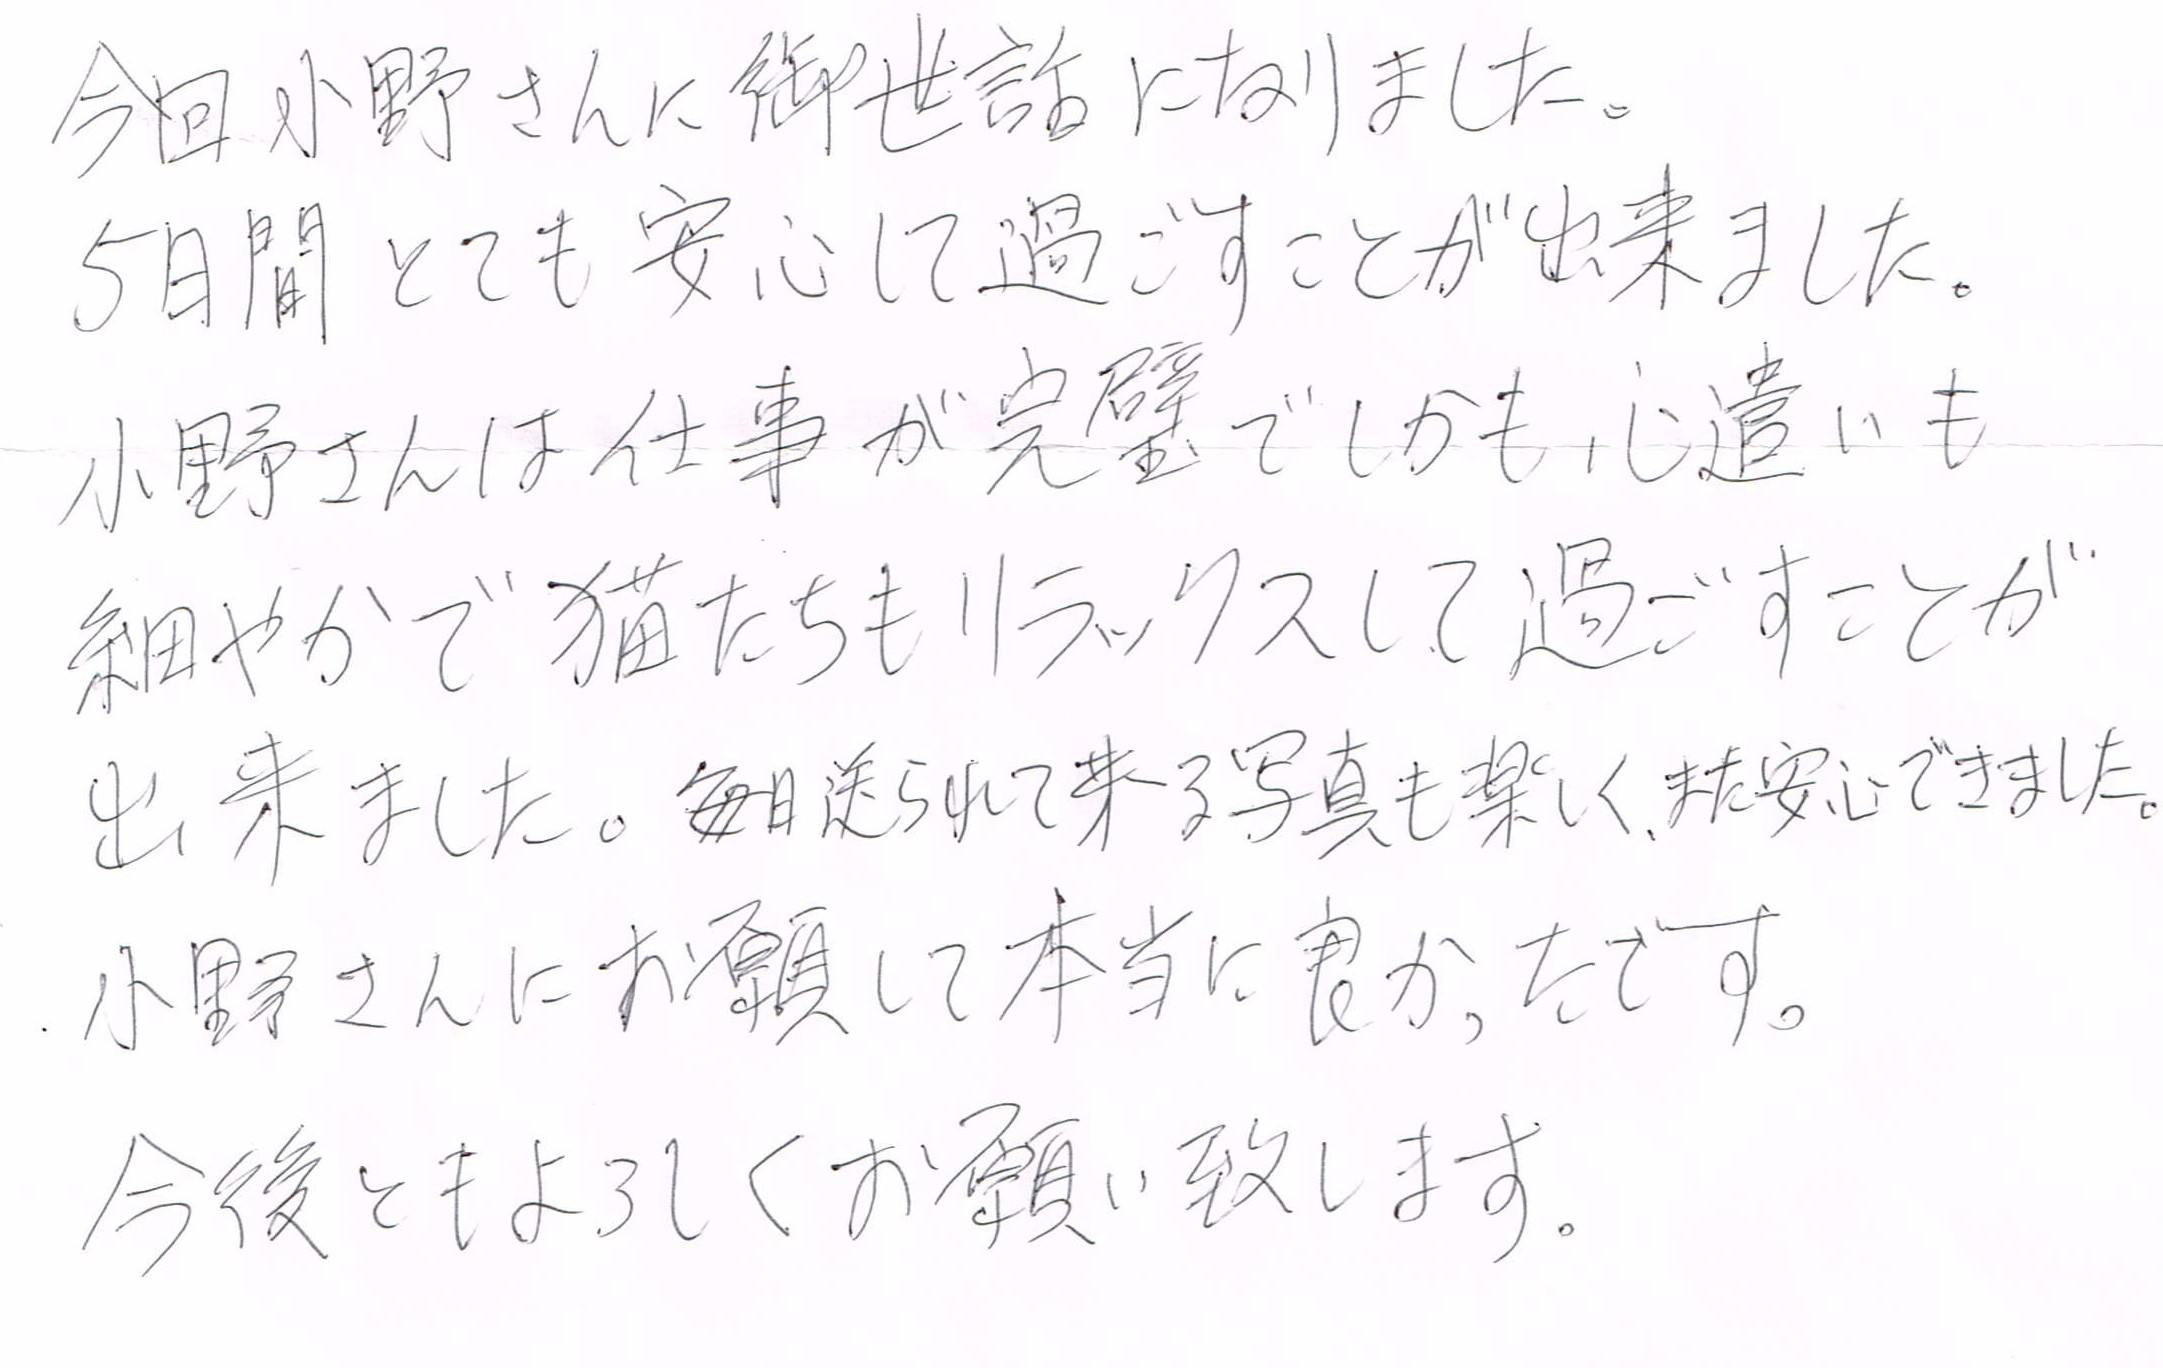 今回小野さんに御世話になりました。
5日間とても安心して過ごすことが出来ました。
小野さんは仕事が完璧でしかも心遣いも
細やかで猫たちもリラックスして過ごすことが
出来ました。毎日送られて来る写真も楽しく、また安心できました。
小野さんにお願して本当に良かったです。
今後ともよろしくお願い致します。